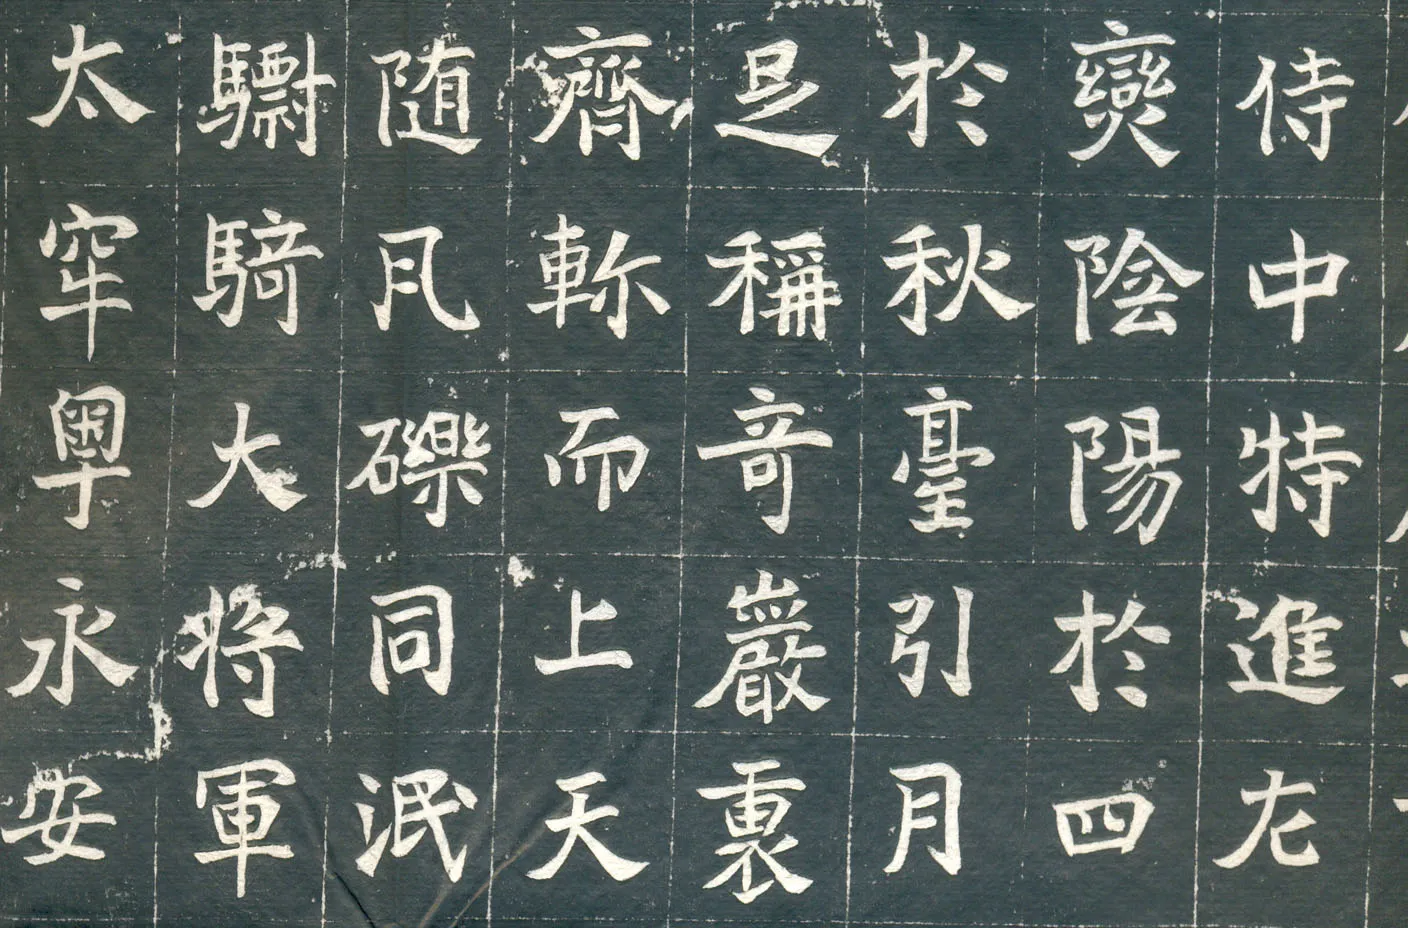 侍中特進左
燮陰陽於四
於秋臺引月
足稱奇巖裏
齊軫而上天
随凡礫同泯
驃騎大将軍
太宰粤永安